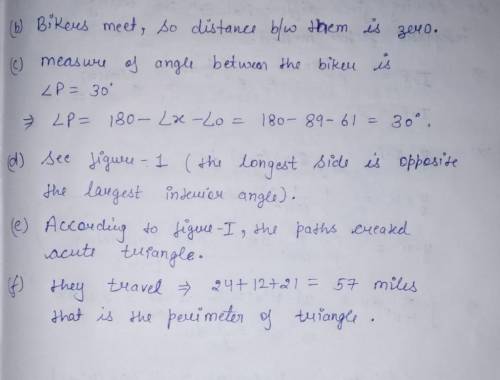 (b) Bikers meet, so distance b/w them is zero.
(c) measure of angle between the biker is
∠P = 30°
⇒ ∠P = 180 - ∠x - ∠o = 180 - 89 - 61 = 30°.
(d) See figure-1 (the longest side is opposite
the largest interior angle).
(e) According to figure-I, the paths created
acute triangle.
(f) they travel ⇒ 24+12+21 = 57 miles
that is the perimeter of triangle.